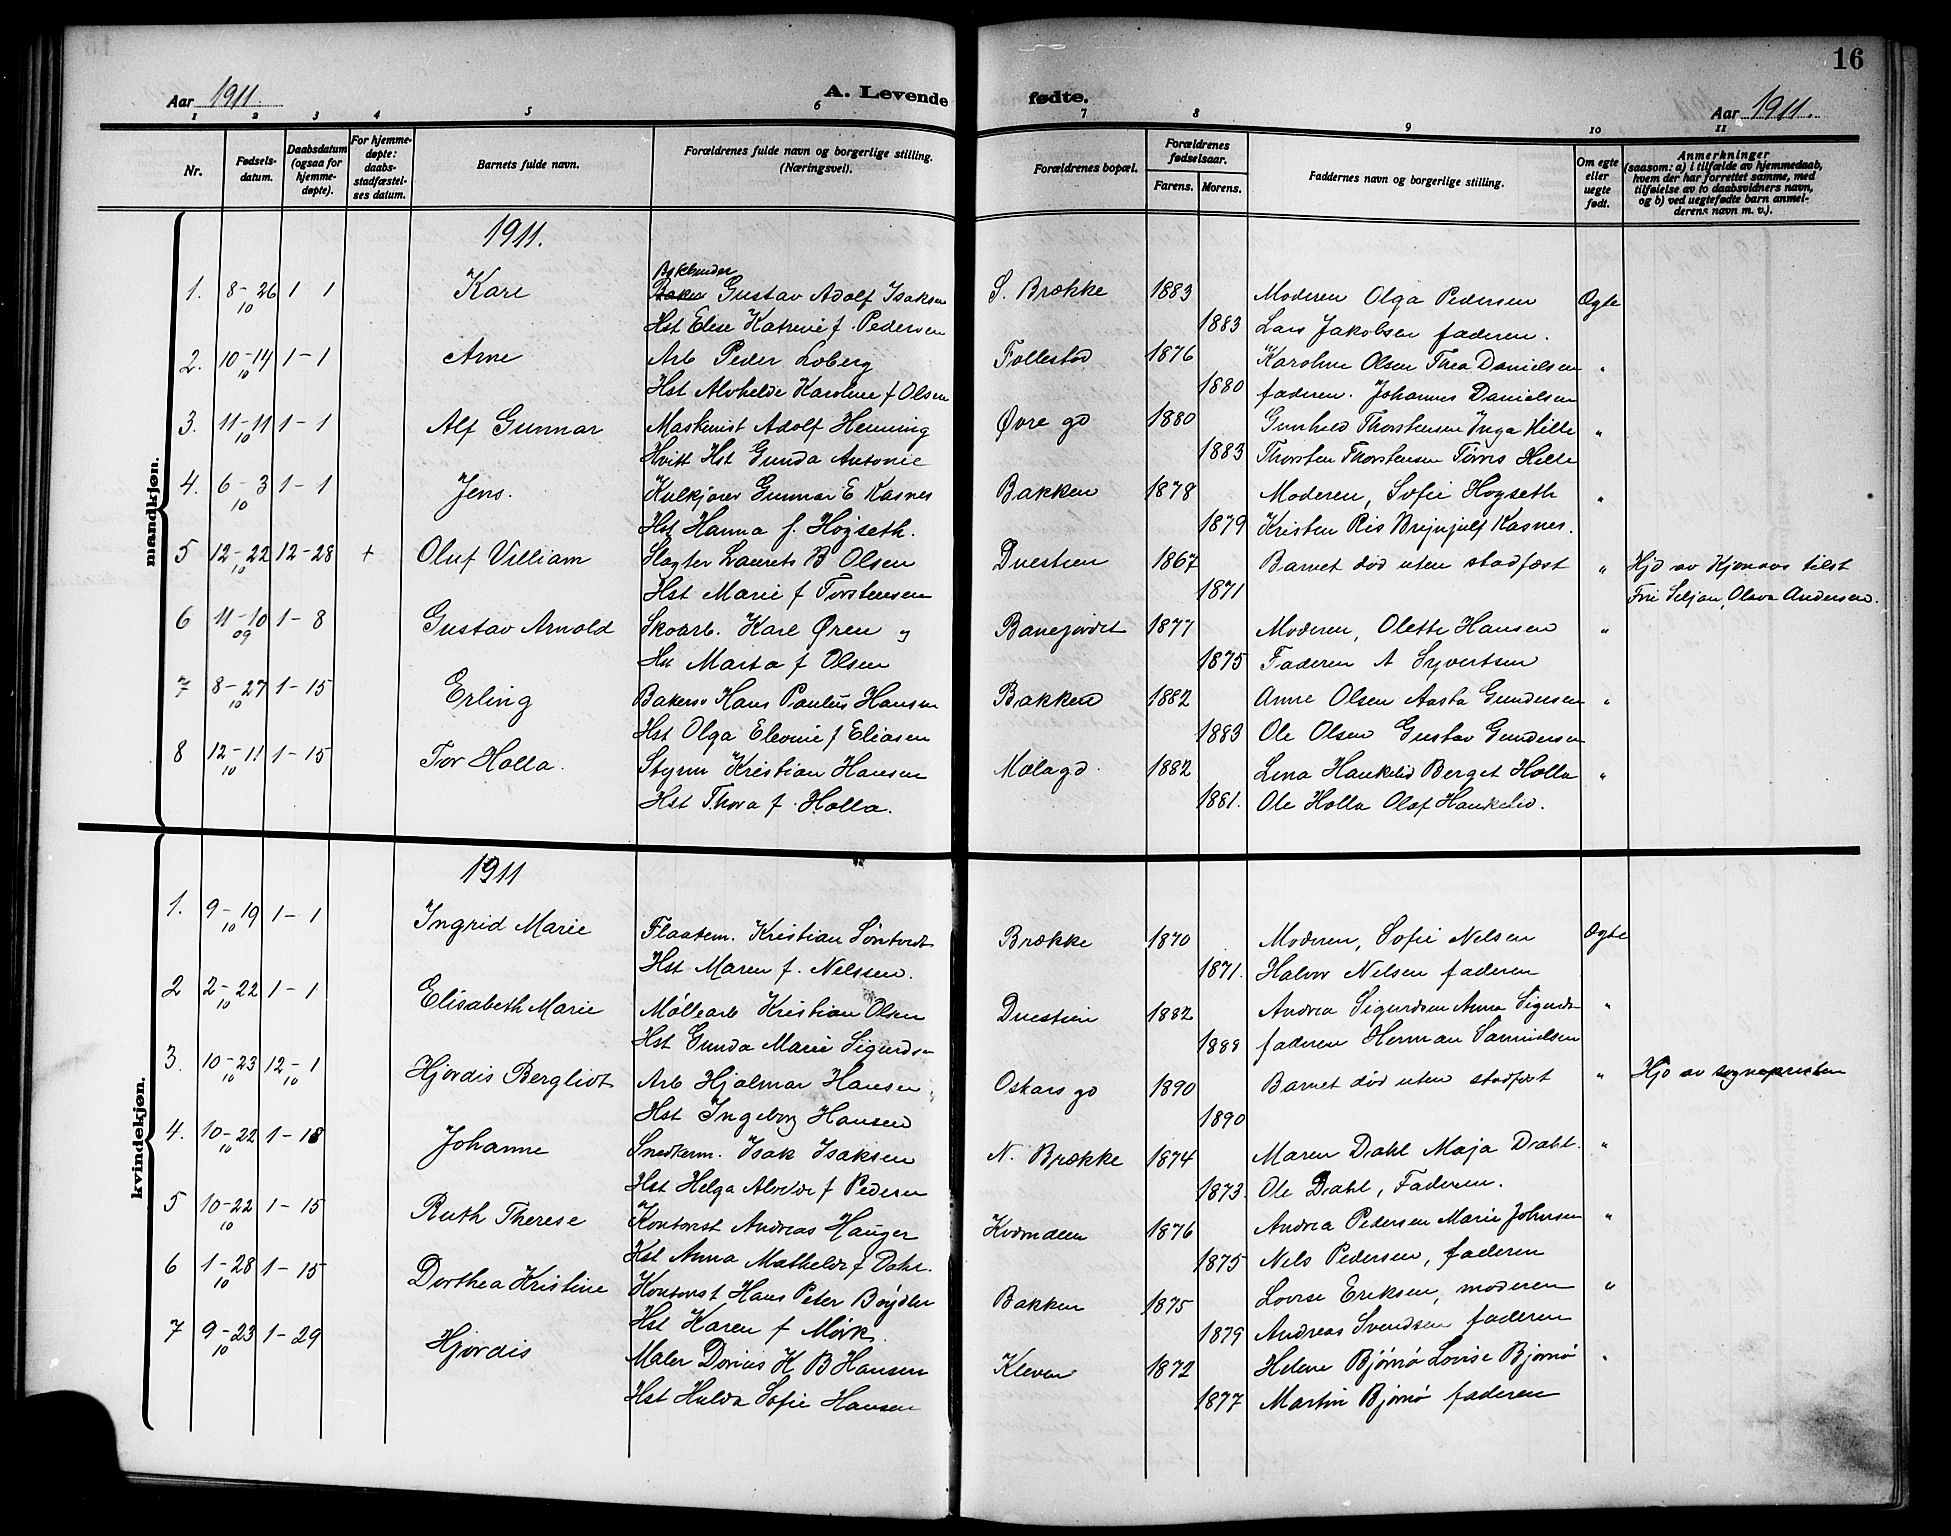 16
Aar 1911.
A. Levende fødte.
Aar 1911.
1 2 3 4 5 6 7 8 9 10 11
Nr.
Fødsels-
datum.
Daabsdatum
(ogsaa for
hjemme-
døpte).
For hjemme-
døpte:
daabs-
stadfæstel-
ses datum.
Barnets fulde navn.
Forældrenes fulde navn og borgerlige stilling.
(Næringsvei).
Forældrenes bopæl.
Forældrenes
fødselsaar.
Farens. Morens.
Faddernes navn og borgerlige stilling.
Om egte
eller
uegte
født.
Anmerkninger
(saasom: a) i tilfælde av hjemmedaab,
hvem der har forrettet samme, med
tilføielse av to daabsvidners navn,
og b) ved uegtefødte barn anmel-
derens navn m. v.).
mandkjøn.
1911.
Bokbinder
1. 8-26/10 1 1 Kare Baker Gustav Adolf Isaksen S. Brække 1883 Moderen Olga Pedersen Ogte
Hst Elise Katrine f. Pedersen 1883 Lars Jakobsen faderen.
2. 10-14/10 1-1 Arne Arb Peder Loberg Follestad 1876 Karoline Olsen Thea Danielsen "
Hst Alvhelde Karoline f Olsen 1880 faderen. Johannes Danielsen
3. 11-11/10 1-1 Alf Gunnar Maskinist Adolf Henning Øvre gd 1880 Gunhild Thorstensen Inga Hille "
Hvitt Hst Gunda Antonie 1883 Thorsten Thorstensen Tønns Hille
4. 6-3/10 1-1 Jens. Kulkjører Gunnar E Kasnes Bakken 1878 Moderen, Sofie Hogseth "
Hst Hanna f. Hogseth. 1879 Kristen Ris Brynjulf Kasnes.
5 12-22/10 12-28 + Oluf Villiam Slagter Laurits B Olsen Duestien 1867 Barnet død uten stadfæst " Hjd av Kjonaas tilst
Hst Marie f Torstensen 1871 Frie Seljan, Olava Andersen.
6 11-10/09 1-8 Gustav Arnold Skoarb. Karl Øren " Banejordet 1877 Moderen, Olette Hansen "
Hst Marta f Olsen 1875 Faderen A Syvertsen
7 8-27/10 1-15 Erling Bakersv Hans Paulus Hansen Bakken 1882 Anne Olsen Aasta Gundersen "
Hst Olga Elevine f Eliasen 1883 Ole Olsen Gustav Gundersen
8 12-11/10 1-15 Tor Holla. Styrm Kristian Hansen Mælagd. 1882 Lina Haukelid Berget Holla "
Hst Thora f. Holla. 1881. Ole Holla Olaf Haukelid.
kvindekjøn.
1911
1. 9-19/10 1-1 Ingrid Marie Flaatem. Kristian Søntvedt Brække 1870 Moderen, Sofie Nelsen Ogte
Hst Maren f. Nelssen. 1871. Halvor Nelsen faderen
2 2-22/10 1-1 Elisabeth Marie Møllearb Kristian Olsen Duestien 1882 Andrea Sigurdsen Anna Sigurds- "
Hst Gunda Marie Sigurdsen 1888 faderen Herman Samuelsen
3. 10-23/10 12-1/10 Hjørdis Bergliot Arb Hjalmar Hansen Oskars gd 1890 Barnet død uten stadfæst " Hjd av sognepresten
Hst Ingeborg Hansen 1890
4. 10-22/10 1-18 Johanne Snedkerm. Isak Isaksen N. Brække 1874 Maren Dahl Maja Dahl. "
Hst Helga Alvilde f Pedersen 1873. Ole Dahl, Faderen.
5 10-22/10 1-15 Ruth Therese Kontorist Andreas Hauger 1876 Andrea Pedersen Marie Johnsen "
Hst Anna Mathilde f Dahl. 1875 Nels Pedersen, faderen
6 1-28/10 1-15 Dorthea Kristine Kontorist Hans Peter Bøydler Bakken 1875 Lovise Eriksen, moderen "
Hst Karen f Mørk. 1879 Andreas Svendsen faderen
7 9-23/10 1-29 Hjørdis Maler Dorius K B Hansen Kleven 1872 Helene Bjørnø Lovise Bjørnø "
Hst Hulda Sofie Hansen 1877 Martin Bjørnø faderen